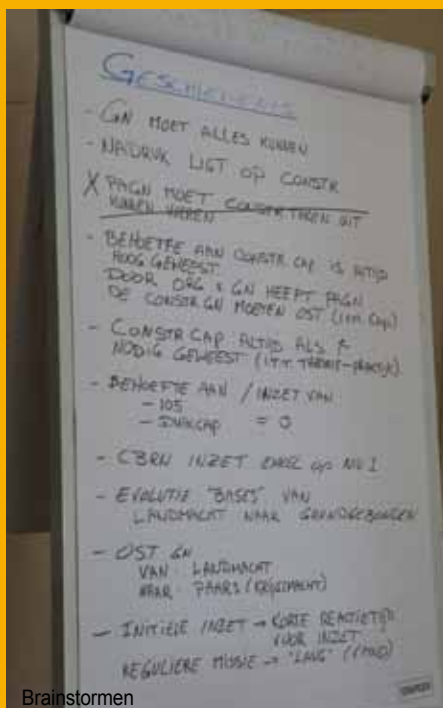 GESCHIEDENIS
- GN MOET ALLES KUNNEN
- NADRUK LIGT OP CONSTR
X PAGN MOET CONSTR TAKEN UIT
KUNNEN VOEREN
- BEHOEFTE AAN CONSTR CAP IS ALTIJD
HOOG GEWEEST
DOOR ORG v GN HEEFT PAGN
DE CONSTR GN MOETEN OST (ivm cap)
- CONSTR CAP ALTIJD ALS
NODIG GEWEEST (ITT THEORIE-PRAKTIJK)
- BEHOEFTE AAN / INZET VAN
- 105
- DUIKCAP = 0
- CBRN INZET ENKEL op
- EVOLUTIE "BASES" VAN
LANDMACHT NAAR GRONDGEBONDEN
- OST GN
VAN LANDMACHT
NAAR PAARS (KRIJGSMACHT)
- INITIËLE INZET → KORTE REACTIETIJD
VOOR INZET
REGULIERE MISSIE → "LANG"
Brainstormen